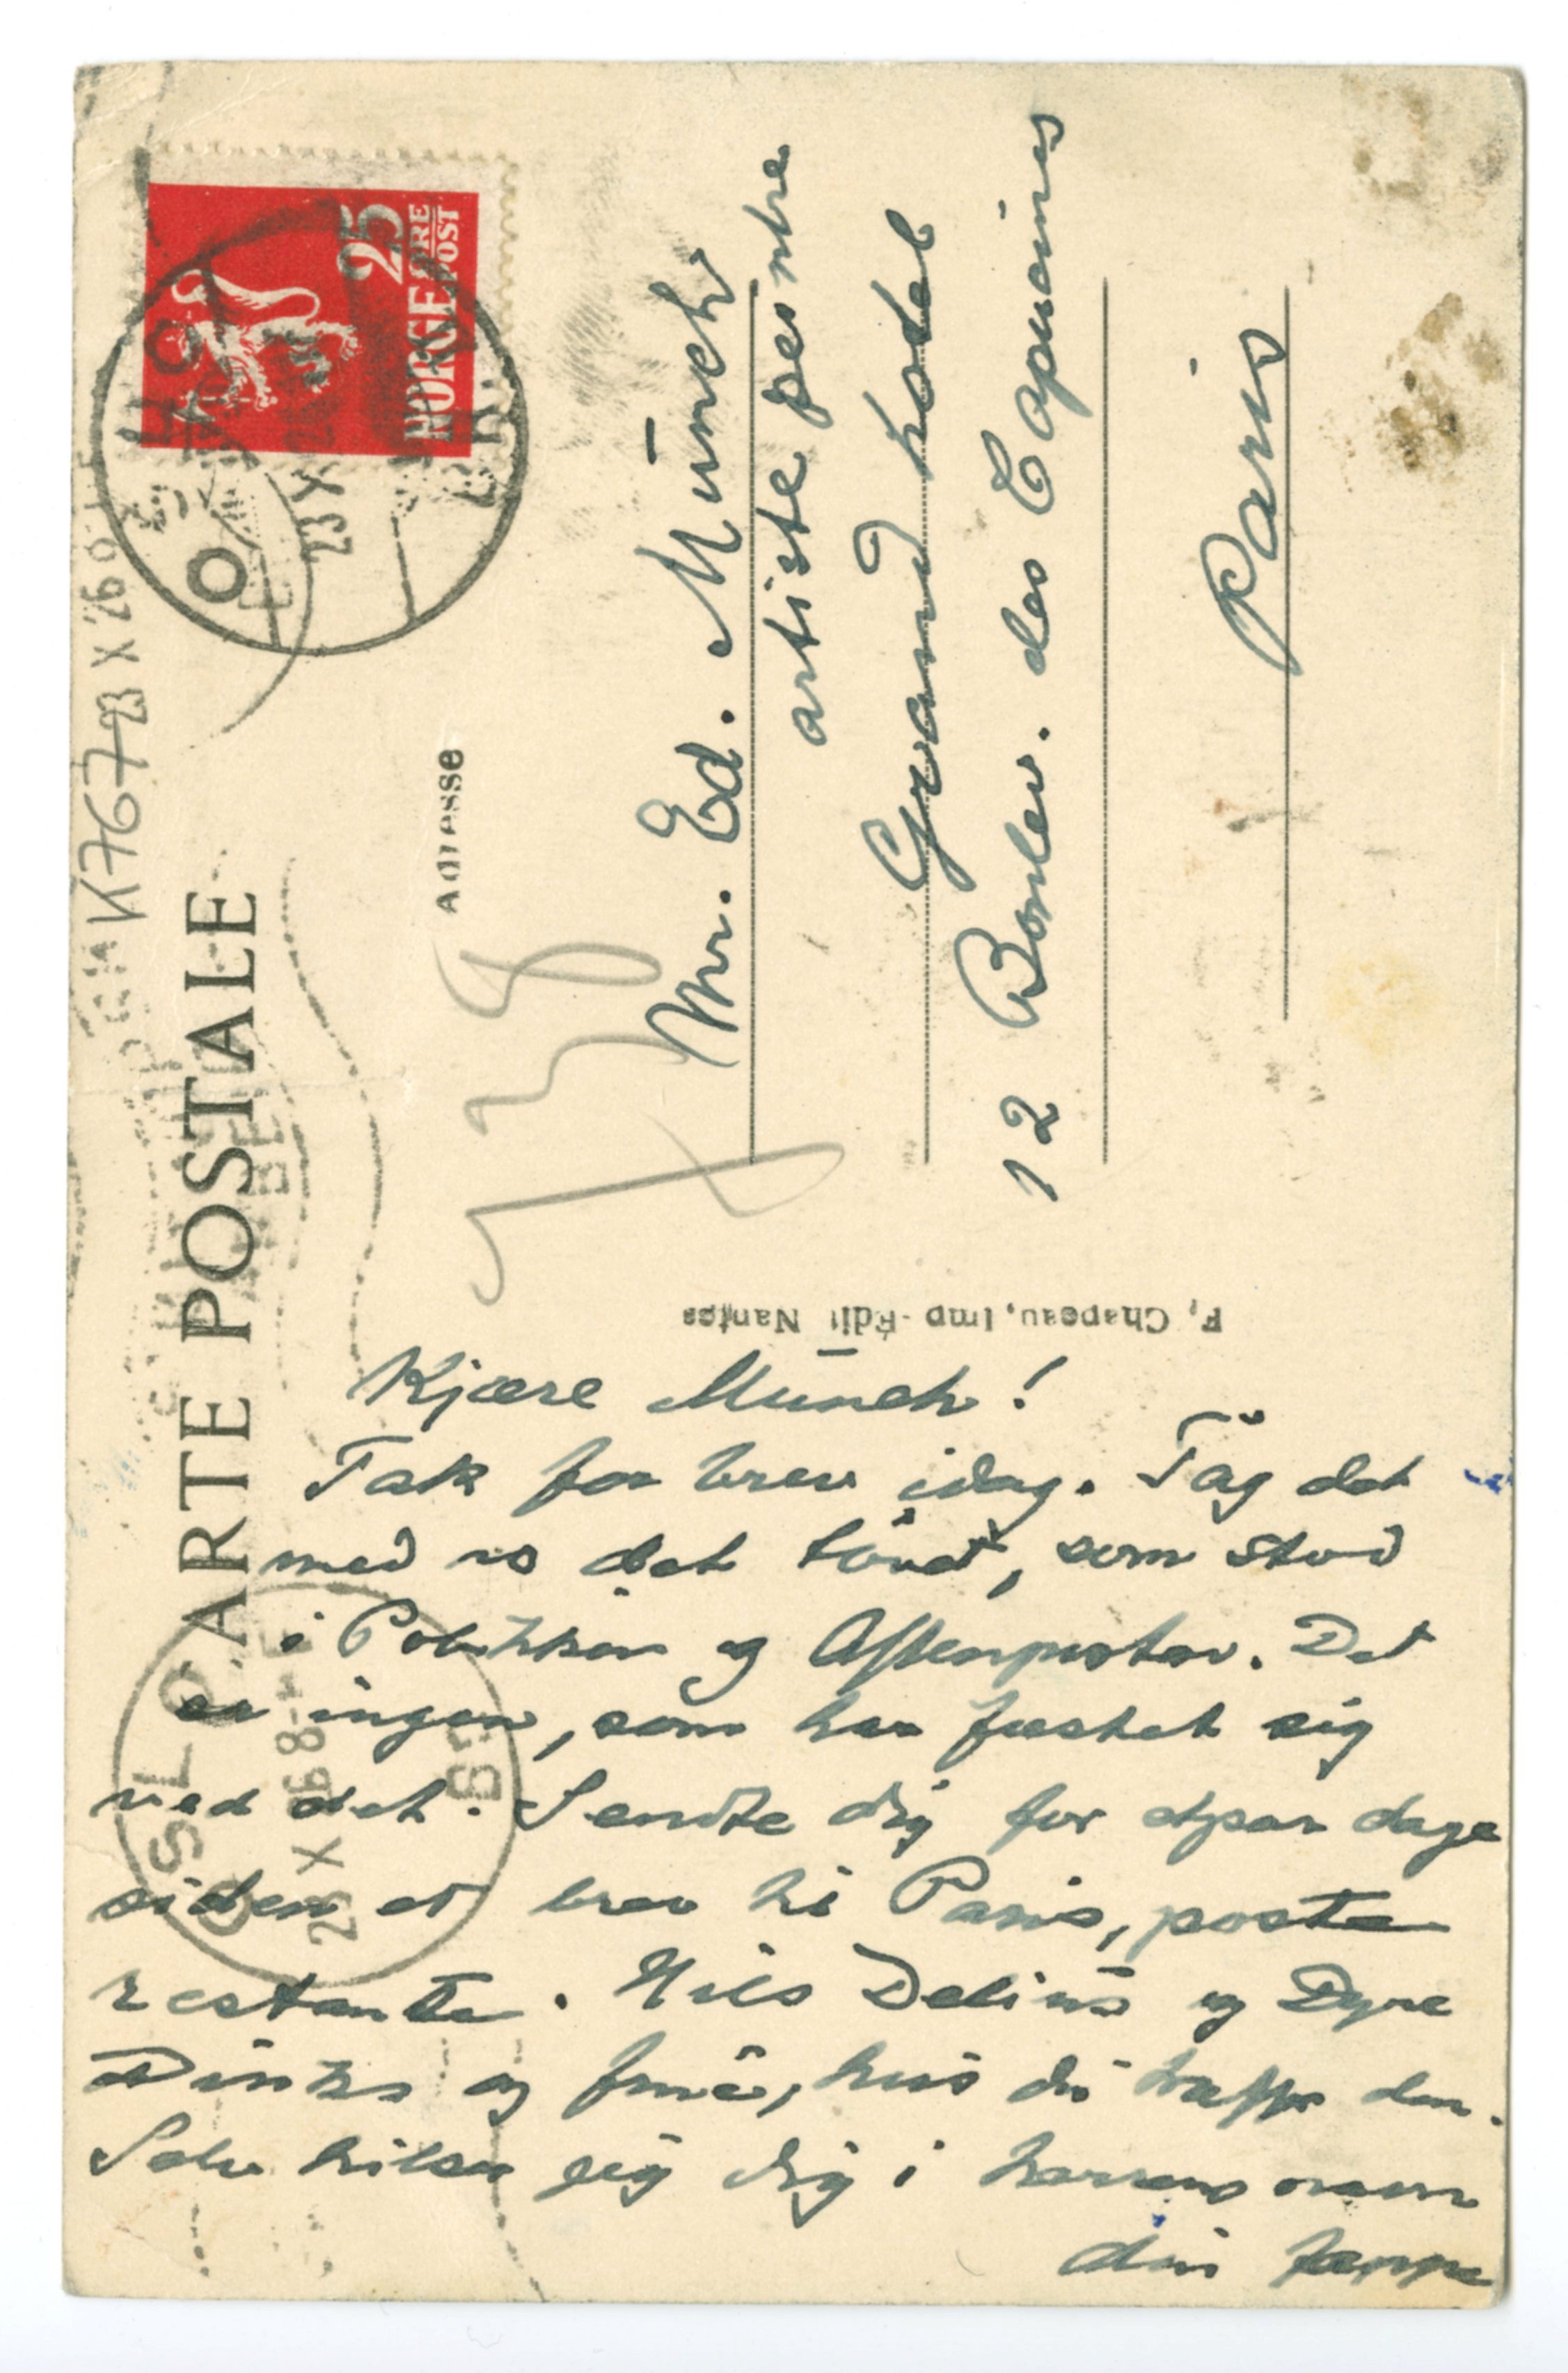 CARTE POSTALE
Adresse
NORGE
25 ØRE
POST
OSLO
23 X 26 8-
K767
23 X 26
Mr. Ed. Munch
artiste peintre
Grand hotel
12 Boulev. des Capucines
Paris
F. Chapeau, Imp.-Edit Nantes
Kjære Munch!
Tak for brev idag. Tag det
med ro det töv, som stod
i Politiken og Aftenposten. Det
er ingen, som har fæstet sig
ved det. Sendte dig for etpar dage
siden et brev til Paris, poste
restante. Hils Delius og Dyre
og frue, hvis du træffer dem.
Selv hilser jeg dig i herrens navn
din Jappe